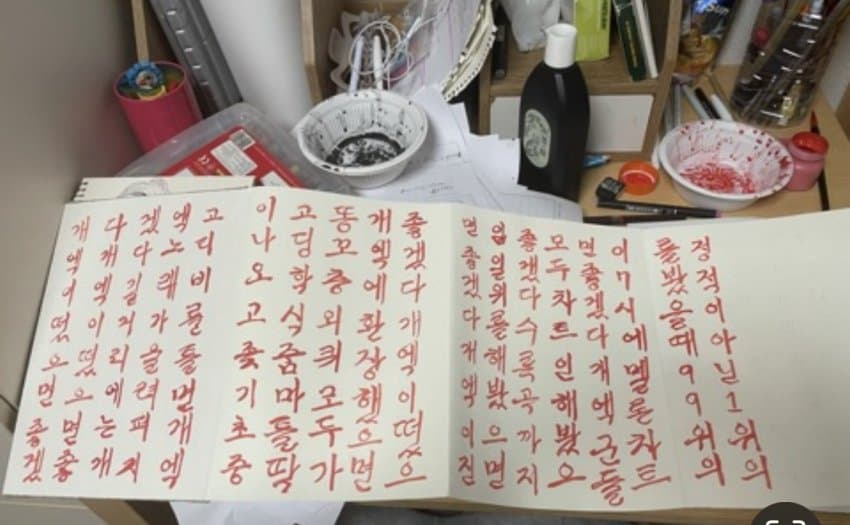 개엑이떴으면좋겠
다개엑이떴으면좋
겠다길거리에는개
엑노래가울려퍼지
고티비를틀면개엑
이나오고좆기초중
고딩학식줌마틀딱
똥꼬충외퀴모두가
개엑에환장했으면
좋겠다개엑이떴으
면좋겠다개엑이진
입일위를해봤으면
좋겠다수록곡까지
모두차트인해봤으
면좋겠다개엑군들
이7시에멜론차트
를봤을때99위의
정적이아닌1위의